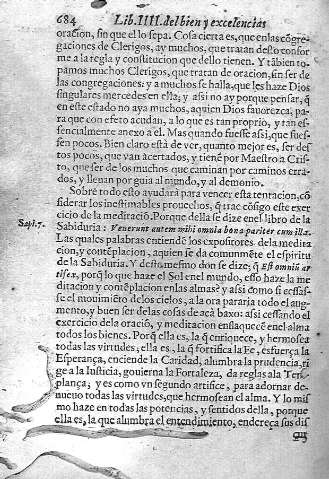 684 Lib. IIII. del bien y excelencias
oracion, sin que ello sepa. Cosa cierta es, que en las cõgre-
gaciones de Clerigos, ay muchos, que tratan desto confor
me a la regla y constitucion que dello tienen. Y tãbien to-
pamos muchos Clerigos, que tratan de oracion, sin ser de
las congregaciones: y a muchos se halla, que les haze Dios
singulares mercedes en ella; y assi no ay porque pensar, q̃
en este estado no aya muchos, a quien Dios fauorezca, pa-
ra que con efeto acudan, a lo que es tan proprio, y tan es-
sencialmente anexo a el. Mas quando fuesse assi, que fues-
sen pocos. Bien claro està de ver, quanto mejor es, ser des
tos pocos, que van acertados, y tienẽ por Maestro a Cris-
to, que ser de los muchos que caminan por caminos erra-
dos, y lleuan por guia al mundo, y al demonio.
Sobre todo esto ayudarà para vencer esta tentacion, cõ
siderar los inestimables prouechos, q̃ trae cõsigo este exer
cicio de la meditaciõ. Porque della se dize en el libro de la
Sapi. 7. Sabiduria: Venerunt autem mihi omnia bona pariter cum illa.
Las quales palabras entiendẽ los expositores de la medita
cion, y contẽplacion, aquien se da comunmẽte el espiritu
de la Sabiduria. Y desto mesmo don se dize; q̃ Est omniũ ar
tifex, porq̃ lo que haze el Sol en el mundo, esso haze la me
ditacion y contẽplacion en las almas: y assi como si cessas-
se el mouimiẽto de los cielos, a la ora pararia todo el aug-
mento, y buen ser de las cosas de acà baxo: assi cessando el
exercicio de la oraciõ, y meditacion enflaquecẽ en el alma
todos los bienes. Porq̃ ella es, la q̃ enriquece, y hermosea
todas las virtudes; ella es, la q̃ fortifica la Fe, esfuerça la
Esperança, enciende la Caridad, alumbra la prudencia, ri
ge a la Iusticia, gouierna la Fortaleza, da reglas a la Tem
plança; y es como vn segundo artifice, para adornar de-
nueuo todas las virtudes, que hermosean el alma. Y lo mis
mo haze en todas las potencias, y sentidos della, porque
ella es, la que alumbra el entendimiento, endereça sus dis